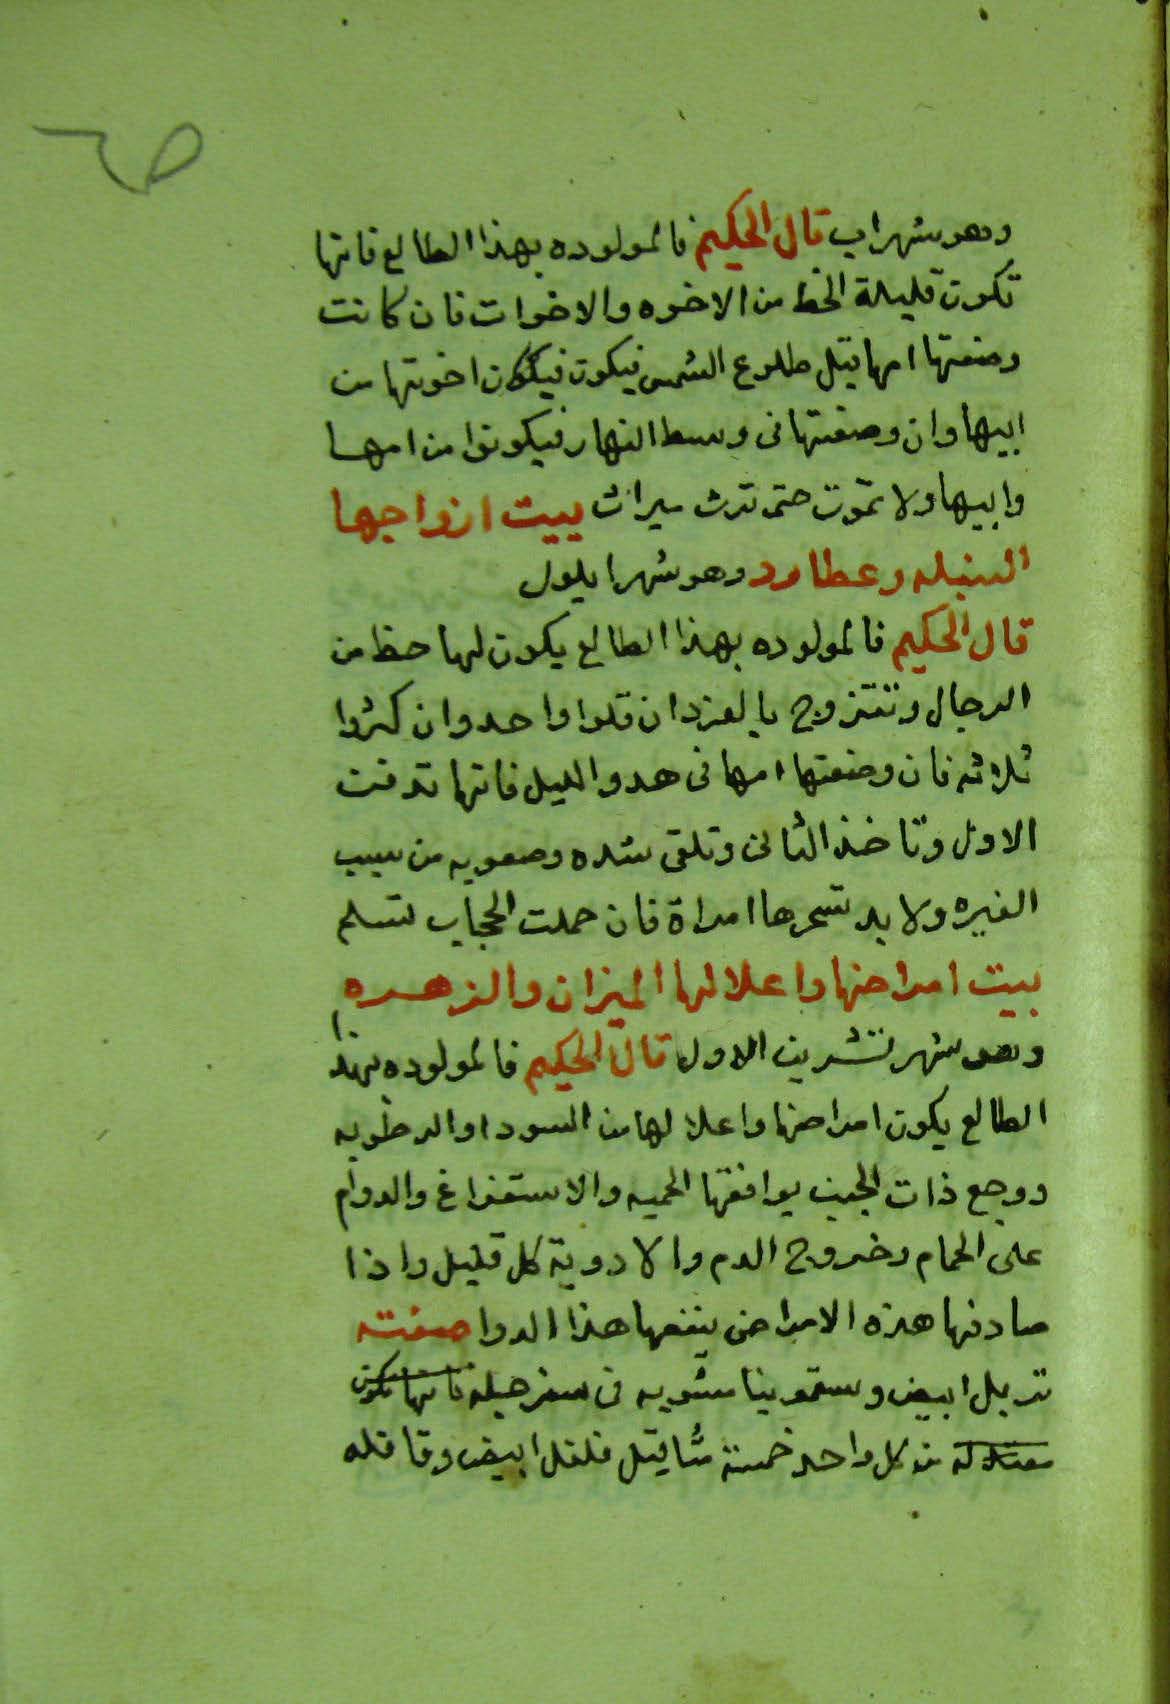 وهو شهر اب قال الحكيم فالمولوده بهذا الطالع فانها
تكون قليلة الحظ من الاخوه والاخوات فان كانت
وضعتها امها قبل طلوع الشمس فيكون فيكون اخوتها من
ابيها وان وضعتها في وسط النهار فيكونوا من امها
وابيها ولا تموت حتى ترث ميراث بيت ازواجها
السنبله وعطارد وهو شهر ايلول
قال الحكيم فالمولوده بهذا الطالع يكون لها حظ من
الرجال وتتزوج بالفرد ان قلوا واحد وان كثروا
ثلاثه فان وضعتها امها في هدو الليل فانها تدفن
الاول وتاخذ الثاني وتلقى شده وصعوبه من سبب
الغيره ولا بد تسحرها امراة فان حملت الحجاب تسلم
بيت امراضها واعلالها الميزان والزهره
وهو شهر تشرين الاول قال الحكيم فالمولوده بهذا
الطالع يكون امراضها واعلالها من السودا والرطوبه
ووجع ذات الجنب يوافقها الحميه والاستفراغ والدوام
على الحمام وخروج الدم والادوية كل قليل واذا
صادفها هذه الامراض ينفعها هذا الدوا صفته
تربل ابيض وسقمونيا مشويه في سفرجله فانها تكون
معتدله من كل واحد خمسة مثاقيل فلفل ابيض وقاقله